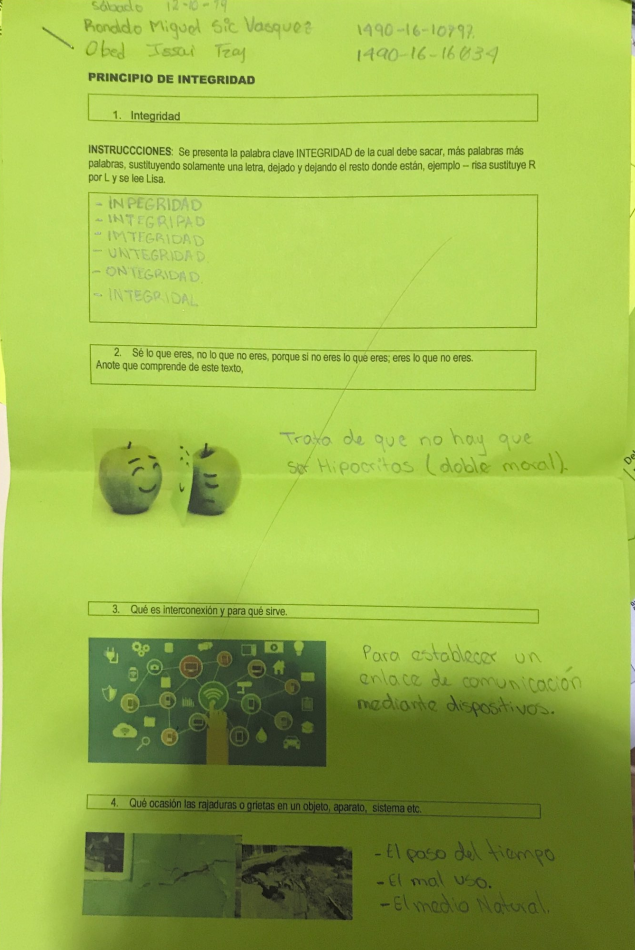 Sábado 12-10-19
Ronaldo Miguel Sic Vasquez 1490-16-10797
Obed Issai Tzoy 1490-16-16034
PRINCIPIO DE INTEGRIDAD
1. Integridad
INSTRUCCCIONES: Se presenta la palabra clave INTEGRIDAD de la cual debe sacar, más palabras más
palabras, sustituyendo solamente una letra, dejado y dejando el resto donde están, ejemplo – risa sustituye R
por L y se lee Lisa.
- INPEGRIDAD
- INTEGRIPAD
- IMTEGRIDAD
- UNTEGRIDAD
- ONTEGRIDAD.
- INTEGRIDAL
2. Sé lo que eres, no lo que no eres, porque si no eres lo que eres; eres lo que no eres.
Anote que comprende de este texto,
Trata de que no hay que
ser Hipocritas (doble moral).
3. Qué es interconexión y para qué sirve.
Para establecer un
enlace de comunicación
mediante dispositivos.
4. Qué ocasión las rajaduras o grietas en un objeto, aparato, sistema etc.
- El paso del tiempo
- El mal uso.
- El medio Natural.